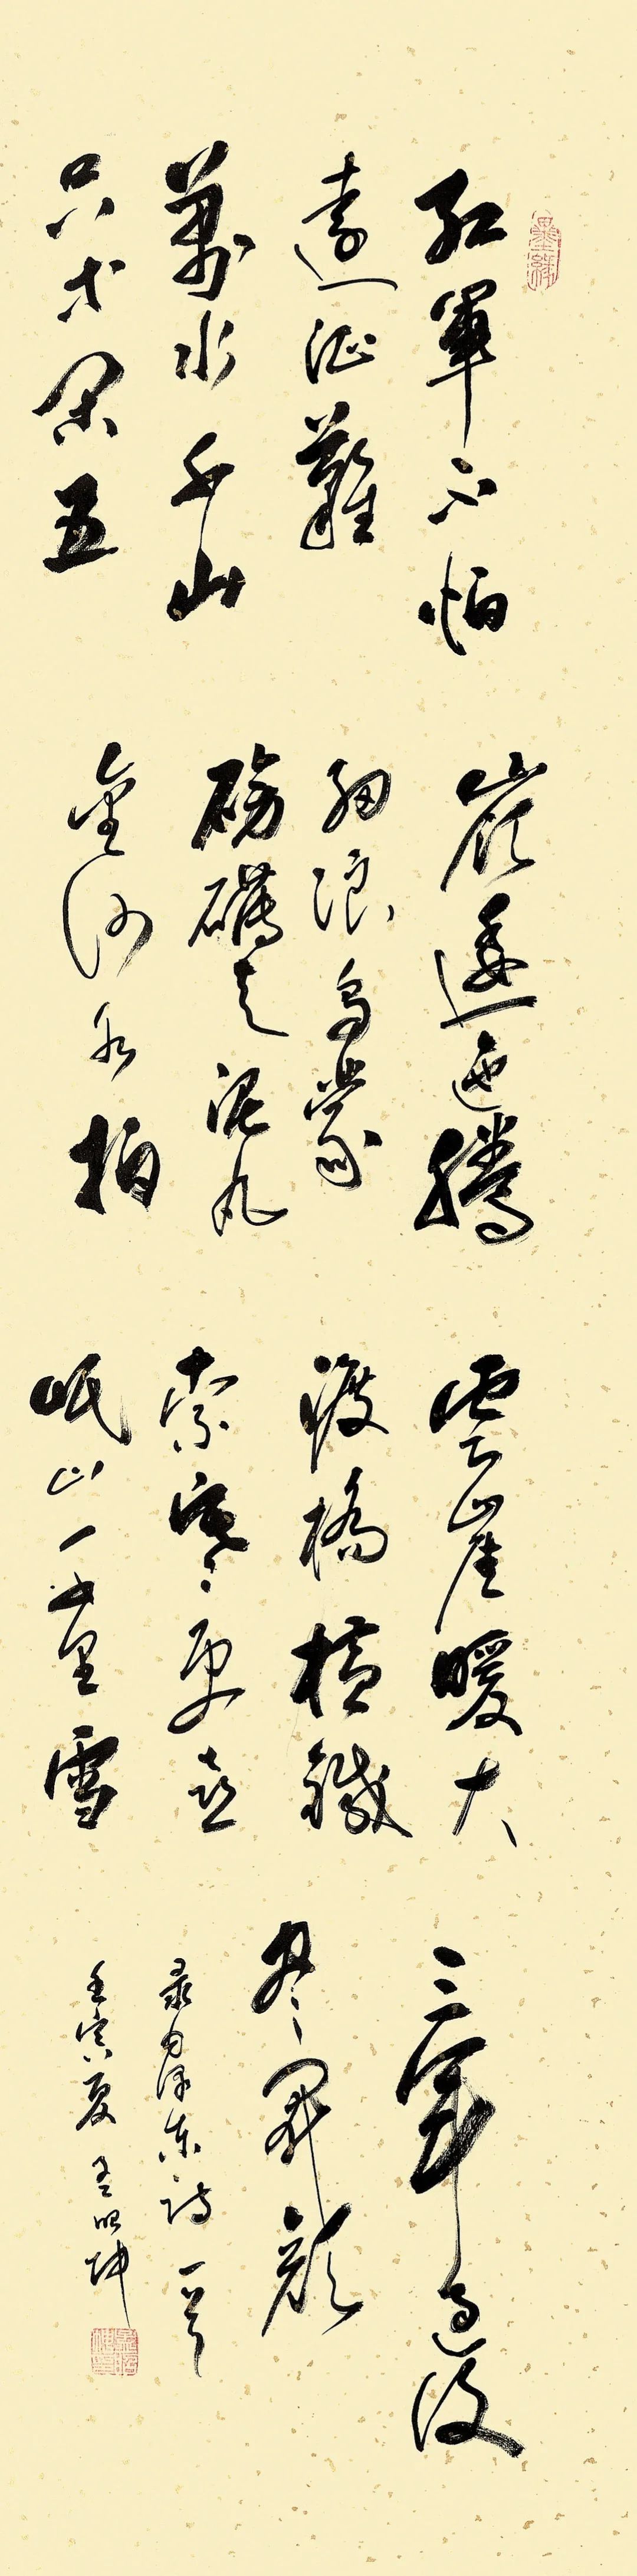 紅軍不怕
遠征難
萬水千山
只等閑五
嶺逶迤騰
細浪烏蒙
磅礴走泥丸
金沙水拍
雲崖暖大
渡橋横鐵
索寒更喜
岷山千里雪
三軍過後
盡開顏
录毛泽东诗一首
壬寅夏
墨缘